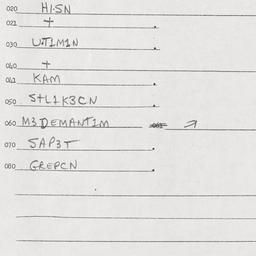 020 HI·SN
021 +
030 U·T1M1N
040 +
041 KAM
050 S+L1K3CN
060 M3DEMANT1M
070 SAP3T
080 GREPCN